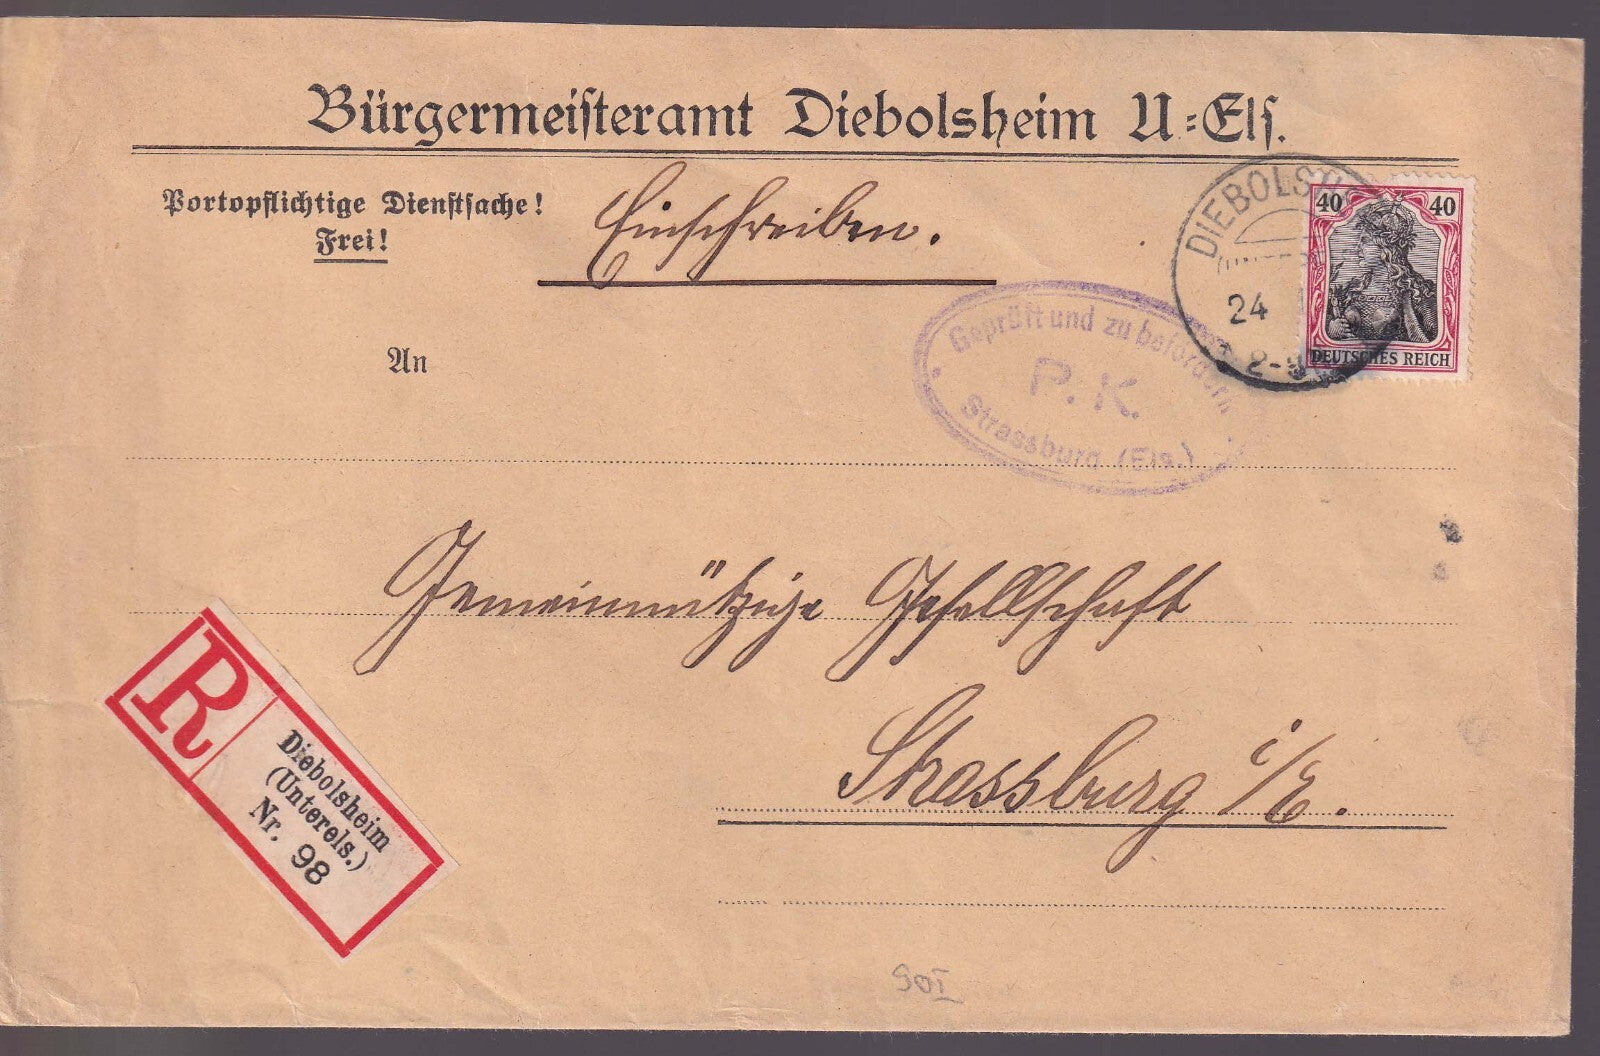 Bürgermeisteramt Diebolsheim U=Els.
Portopflichtige Dienstsache!
Frei!
Einschreiben.
An
DIEBOLS
24
2-3
40 40
DEUTSCHES REICH
Geprüft und zu befördern
P. K.
Strassburg (Els.)
Gemeinnützige Gesellschaft
Strassburg i/E.
R
Diebolsheim
(Unterels.)
Nr. 98
90I